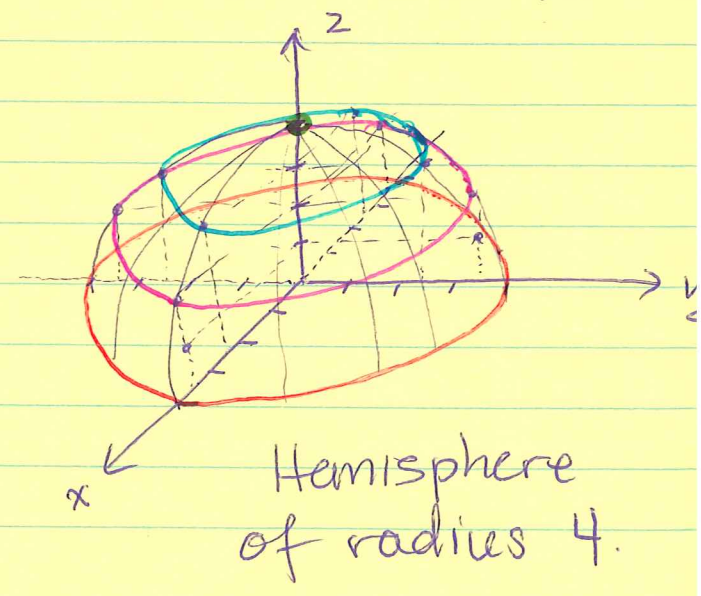 z
y
x
Hemisphere
of radius 4.